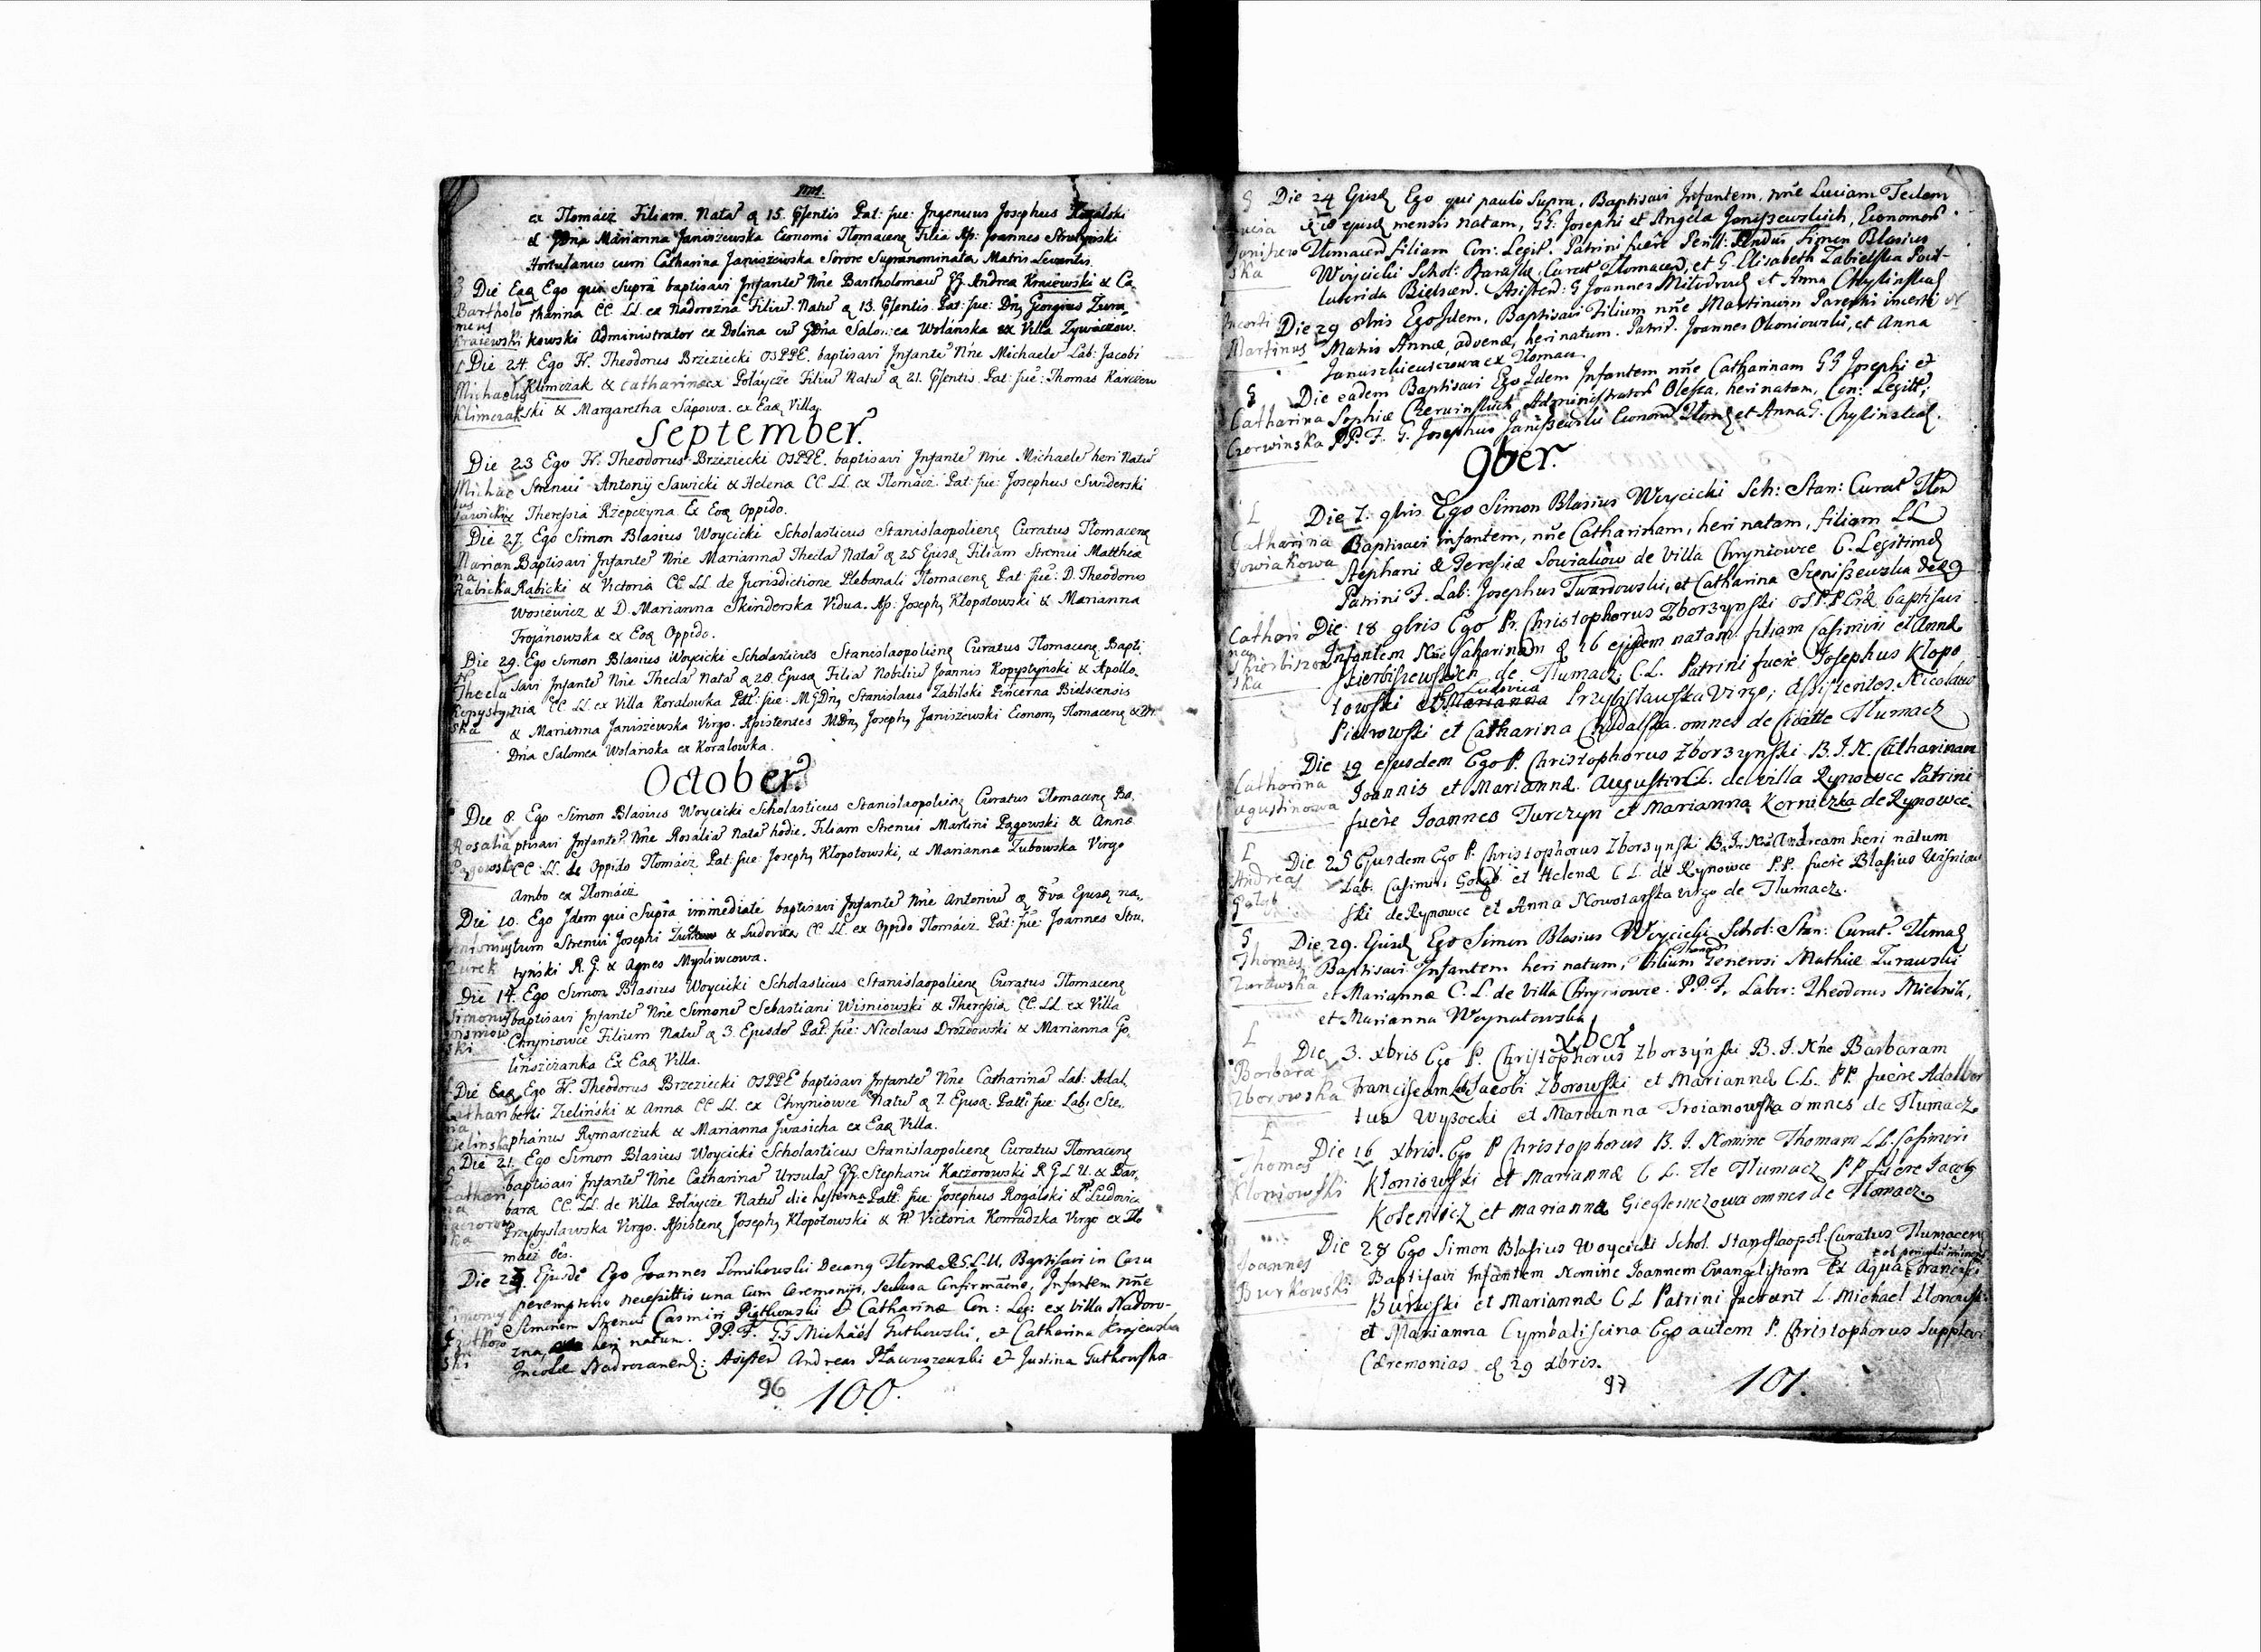 ex Tłomácz Filiam. Nata q 15. Psentis Pat: fue: Ingenuus Josephus Rogálski
& Gdna Márianna Janiszewska Economi Tłomacenę Filia Ass: Joannes Strutyński
Hortulanus cum Catharina Janiszewska Sorore Supranominata Matris Levantis.
Die Eaq Ego qui Suprà baptisavi Infante Nne Bartholomæu GG. Andrea Kraiewski & Ca-
Bartholo
meus
Kraiewski
tharina CC. LL. ex Nadorożna Filiu. Natu q 13. Psentis. Pat: fue: Dnq Georgius Żura-
kowski Administrator ex Dolina cu Gdna Salomea Wolánska ex Villa Żywaczow.
Die 24. Ego Fr. Theodorus Brzeziecki OSPPE. baptisavi Infante Nne Michaele Lab: Jacobi
Michaelq
Klimczak
Klimczak & Catharinæ ex Poláycze Filiu Natu q 21. Psentis. Pat: fue: Thomas Karczew
ski & Margaretha Sápowa. ex Eaq Villa.
September.
Die 23 Ego Fr. Theodorus Brzeziecki OSPPE. baptisavi Infante Nne Michaele heri Natu
Michae
lus
Sawicki
Strenui Antonij Sawicki & Helenæ CC LL ex Tłomácz. Pat: fue: Josephus Swiderski
& Theressia Rzepczyna. Ex Eoq Oppido.
Die 27. Ego Simon Blasius Woycicki Scholasticus Stanislaopolienę Curatus Tłomacenę
Marian
na
Rabicka
Baptisavi Infante Nne Marianna Thecla Nata q 25 Ejusq Filiam Strenui Matthiæ
Rabicki & Victoria CC LL de Jurisdictione Plebanali Tłomacenę Pat fue: D. Theodorus
Wosiewicz & D. Marianna Skinderska Vidua. Ass: Josephq Kłopotowski & Marianna
Trojánowska ex Eoq Oppido.
Die 29. Ego Simon Blasius Woycicki Scholasticus Stanislaopolienę Curatus Tłomacenę Bapti-
Thecla
Kopystyń
ska
savi Infante Nne Thecla Nata q 28. Ejusq Filia Nobiliu Joannis Kopystyński & Apollo-
nia CC LL ex Villa Koralowka Patt: fue: MGDnq Stanislaus Zabilski Pincerna Bielscensis
& Marianna Janiszewska Virgo. Assistentes MDnq Josephq Janiszewski Economq Tłomacenę &
Dna Salomea Wolánska ex Koralowka.
October.
Die 8. Ego Simon Blasius Woycicki Scholasticus Stanislaopolienę Curatus Tłomacenę Ba-
Rosalia
Pągowska
ptisavi Infante Nne Rosália Nata hodie, Filiam Strenui Martini Pągowski & Annæ
CC. LL. de Oppido Tłomácz. Pat: fue: Josephq Kłopotowski, & Marianna Zubowska Virgo
Ambo ex Tłomácz
Die 10. Ego Idem qui Suprà immediate baptisavi Infante Nne Antoniu q 8va Ejusq na-
Antonius
Żurek
tum Strenui Josephi & Ludovica CC. LL. ex Oppido Tłomácz. Pat: fue: Joannes Stru-
tyński R. G. & Agnes Mysliwcowa.
Die 14. Ego Simon Blasius Woycicki Scholasticus Stanislaopolienę Curatus Tłomacenę
Simonus
Wisniow
ski
baptisavi Infante Nne Simone Sebastiani Wisniowski & Theresia CC. LL. ex Villa
Chryniowce Filium Natu q 3. Ejusde Pat: fue: Nicolaus Drozdowski & Marianna Go-
linszczanka Ex Eaq Villa.
Die Eaq Ego Fr. Theodorus Brzeziecki OSPPE baptisavi Infante Nne Catharina Lab: Adal-
Cathari
na
Zielinska
berti Zieliński & Anna CC LL. ex Chryniowce Natu q 7. Ejusq. Patti fue: Lab: Ste-
phánus Rymarczuk & Marianna Jwasicha ex Eaq Villa.
Die 21. Ego Simon Blasius Woycicki Scholasticus Stanislaopolienę Curatus Tłomacenę
Cathari
na
Kaczorow
ska
baptisavi Infante Nne Catharina Ursula GG. Stephani Kaczorowski R G L U. & Bar-
bara CC. LL. de Villa Poláycze Natu die hesterna Patt: fue Josephus Rogálski & Ludovica
Przybysławska Virgo. Assistenę Josephq Kłopotowski & Victoria Komadzka Virgo ex Tło
macz Os.
Die Ejusde Ego Joannes Łomikowski Decanq Tłomæ R.S.L.U, Baptisavi in Casu
peremptorio necessittis una cum Ceremonijs, seclusa Confirmatne, Infantem nne
Simonem Strenui Casmiri Piętkowski & Catharinæ Con: Leg: ex villa Nadoro-
żna, heri natum. PP. F. GG Michäel Gutkowski, et Catharina Krajewska
Incolæ Nadrozanenses: Assisten Andreas Pławuszewski & Justina Gutkowska
96
100.
Die 24 Ejusd Ego qui paulo Supra, Baptisavi Infantem, nne Luciam Teclam
Lucia
Janiszew
ska
q 18 ejusd mensis natam, GG. Josephi et Angela Janiszewskich, Economor
Tłumacen filiam Con: Legit. Patrini fuere Perill: Rndus Simon Blasius
Woycicki Schol: Curat Tłomacen, et G. Elisabeth Zabielska Poc-
lucrida Bielscen. Assisten: G Joannes et Anna Chylinska
Incerti
Martinus
Die 29 8bris Ego Idem, Baptisavi Filium nne Martinum Parentis incerti
Matris Annæ, advenæ, heri natum. Patrin. Joannes Okoniowski, et Anna
Januszkiewiczowa ex Tłomacz.
Die eadem Baptisavi Ego Idem Infantem nne Catharinam GG Josephi et
Catharina
Czerwinska
Sophiæ Czerwinskich Administrator Olesza, heri natam, Con: Legitt;
PP. F. G. Josephus Janiszewski Econom Tłom et Anna G. Chylinska.
9ber.
L
Die 7. 9bris Ego Simon Blasius Woycicki Sch: Stan: Curat Tłom
Catharina
Sowiakowa
Baptisavi infantem, nne Catharinam, heri natam, filiam LL
Stephani & Teresiæ Sowiakow de Villa Chryniowce C. Legitime
Patrini F. Lab: Josephus Twardowski, et Catharina Szeniszewska
Cathari
na
Skierbiszow
ska
Die 18 9bris Ego Pr. Christophorus Zborzynski OS.P.P Er baptisavi
Infantem Nne Catharinam q 16 ejusdem natam filiam Casimiri et Annæ
Skierbiszewskich de Tłumacz C.L. Patrini fuere Josephus Klopo
towski et Marianna Ludovica Przybisławska Virgo; Assistentes Nicolaus
Piotrowski et Catharina Chudalska omnes de Civitte Tłumacz
Die 19 ejusdem Ego P. Christophorus Zborzynski B.I.N. Catharinam
Catharina
Agustinowa
Joannis et Mariannæ Augustin CL. de villa Rynowce Patrini
fuere Joannes Turczyn et Marianna Korniczka de Rynowce
L
Die 25 Ejusdem Ego P. Christophorus Zborzynski B.I.Nne Andream heri natum
Andreas
Gołąb
Lab: Casimiri Gołąb et Helenæ C L. de Rynowce P.P. fuere Blasius Wisniow
ski de Rynowce et Anna Nowotarska virgo de Tłumacz.
Die 29. Ejusd Ego Simon Blasius Woycicki Schol: Stan: Curat. Tłumac
Thomas
Żurawska
Baptisavi Infantem heri natum, Thomas Filium Generosi Mathiæ Zurawski
et Mariannæ C. L. de Villa Chryniowce. PP. F. Labor: Theodorus Mielnik,
et Marianna Woynatowska
Xber
L
Die 3. Xbris Ego P. Christophorus Zborzyński B.I. Nne Barbaram
Barbara
Zborowska
Franciscam Lab: Jacobi Zborowski et Mariannæ C.L. PP. fuere Adalber
tus Wysocki et Marianna Troianowska omnes de Tłumacz
L
Die 16 Xbris. Ego P Christophorus B. I. Nomine Thomam LL. Casimiri
Thomas
Kłoniowski
Kłoniowski et Mariannæ C L. de Tłumacz PP. fuere Jacobq
Kosenicz et Marianna Gieglewczowa omnes de Tłomacz.
Die 28 Ego Simon Blasius Woycicki Schol. Stanislaopol. Curatus Tłumacenę
Joannes
Burkowski
Baptisavi Infantem Nomine Joannem Evangelistam Ex Aqua ob periculu Francisci
Burkowski et Mariannæ C L Patrini fuerunt L. Michael
et Marianna Cymbalisсina Ego autem P. Christophorus Supplevi
Cæremonias q 29 Xbris.
97
101.